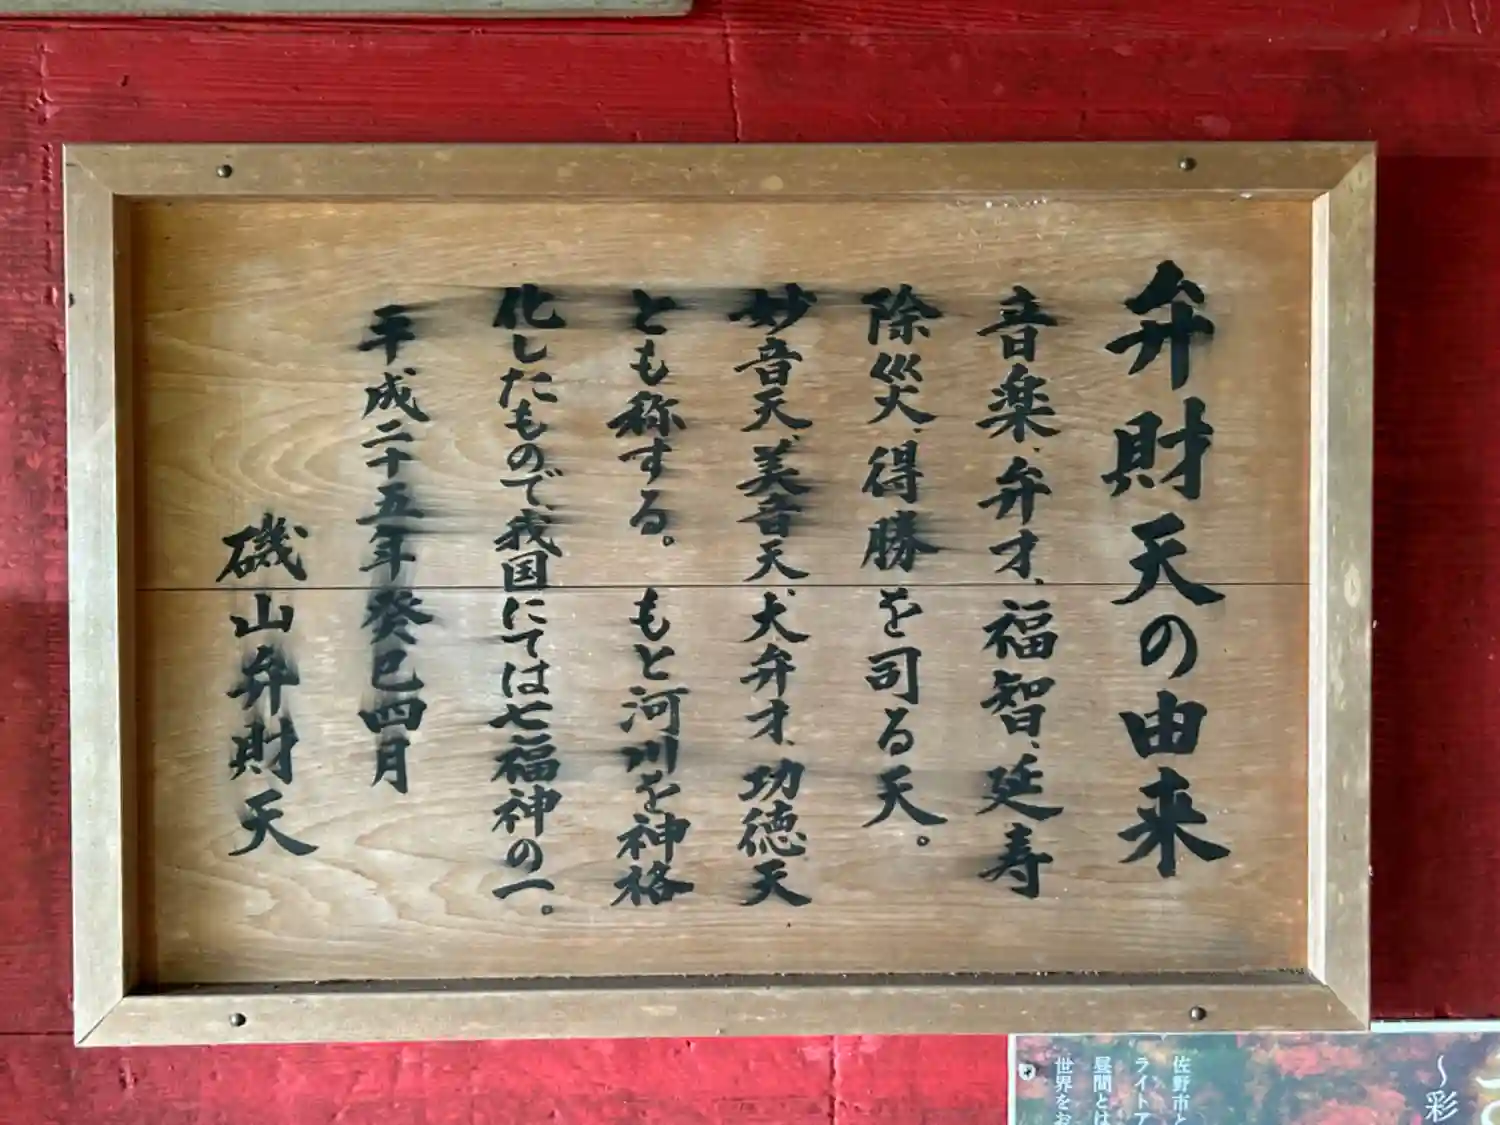 弁財天の由来
音楽、弁才、福智、延寿
除災、得勝を司る天。
妙音天、美音天、大弁才、功徳天
とも称する。もと河川を神格
化したもので、我国にては七福神の一。
平成二十五年癸巳四月
磯山弁財天
〜彩
佐野市と
ライトア
昼間とは
世界をお